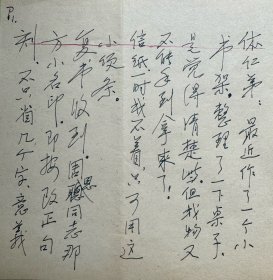 P1.
体仁弟：最近作了一个小
书架，整理了一下桌子，
是觉得清楚些。但找物又
不能手到拿来了！
信纸一时找不着，只可用这
小便条。
复书收到。周思同志那
方小名印，即按改正句
刻，不只省几个字，意义